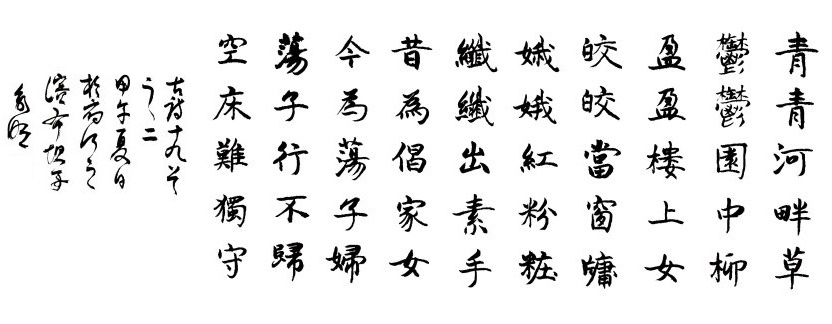 青青河畔草
鬱鬱園中柳
盈盈楼上女
皎皎當窗牗
娥娥紅粉粧
纖纖出素手
昔為倡家女
今為蕩子婦
蕩子行不歸
空床難獨守
古詩十九首
之二
甲午夏日